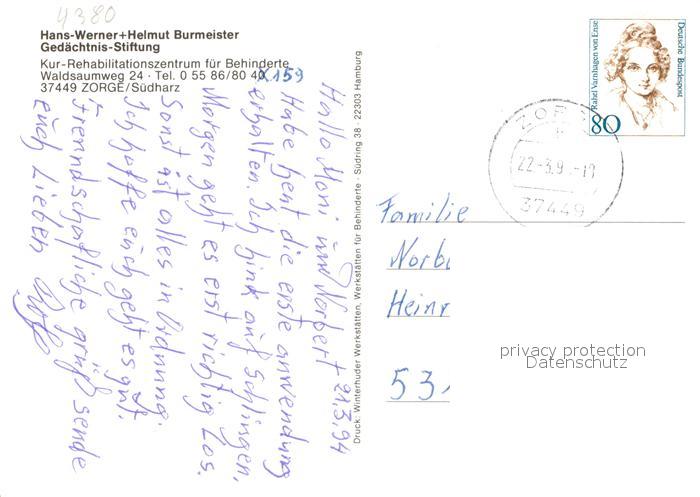 4380
Hans-Werner+Helmut Burmeister
Gedächtnis-Stiftung
Kur-Rehabilitationszentrum für Behinderte
Waldsaumweg 24 · Tel. 0 55 86/80 40 X159
37449 ZORGE/Südharz
Hallo Moni und Norbert 21.3.94
Habe heut die erste anwendung
erhalten. Ich bin auf Schlingen,
Morgen geht es erst richtig Los.
Sonst ist alles in Ordnung.
Ich hoffe euch geht es gut.
Freundschafliche grüße sende
euch Lieben
Druck: Winterhuder Werkstätten, Werkstätten für Behinderte · Südring 38 · 22303 Hamburg
Rahel Varnhagen von Ense
Deutsche Bundespost
80
ZORGE
22-3.9 -18
37449
Familie
Norb
Heinr
53
privacy protection
Datenschutz